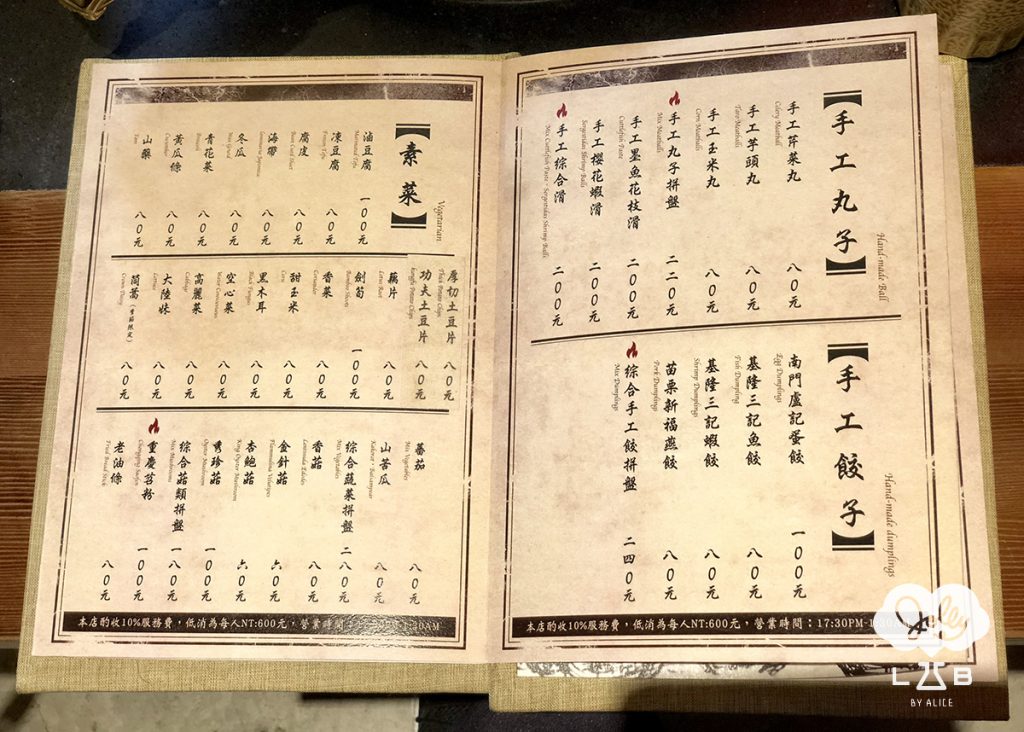 【手工丸子】
Hand-made Ball
手工芹菜丸 八0元
Celery Meatball
手工芋頭丸 八0元
Taro Meatballs
手工玉米丸 八0元
Corn Meatballs
手工丸子拼盤 二二0元
Mix Meatballs
手工墨魚花枝滑 二00元
Cuttlefish Paste
手工櫻花蝦滑 二00元
Sergestidae Shrimp Balls
手工綜合滑 二00元
Mix Cuttlefish Paste、Sergestidae Shrimp Balls
【手工餃子】
Hand-made dumplings
南門盧記蛋餃 一00元
Egg Dumplings
基隆三記魚餃 八0元
Fish Dumpling
基隆三記蝦餃 八0元
Shrimp Dumplings
苗栗新福燕餃 八0元
Pork Dumplings
綜合手工餃拼盤 二四0元
Mix Dumplings
本店酌收10%服務費，低消為每人NT:600元，營業時間：17:30PM-1:30AM
【素菜】
Vegetarian
滷豆腐 一00元
Marinated Tofu
凍豆腐 八0元
Frozen Tofu
腐皮 八0元
Bean Curd Sheet
海帶 八0元
Laminaria Japonica
冬瓜 八0元
Wax Gourd
青花菜 八0元
Broccoli
黃瓜條 八0元
Cucumber
山藥 八0元
Yam
厚切土豆片 八0元
Thick Potato Chips
功夫土豆片 八0元
Kungfu Potato Chips
藕片 八0元
Lotus Root
劍筍 一00元
Bamboo Shoots
香菜 八0元
Coriander
甜玉米 八0元
Corn
黑木耳 八0元
Black Fungus
空心菜 八0元
Water Convolvulus
高麗菜 八0元
Cabbage
大陸妹 八0元
Lettuce
茼蒿（季節限定） 八0元
Crown Daisy
蕃茄 八0元
Mix Vegetables
山苦瓜 八0元
綜合蔬菜拼盤 二八0元
Mix Vegetables
香菇 八0元
Lentinula Edodes
金針菇 六0元
Flammulina Velutipes
杏鮑菇 六0元
King Oyster Mushroom
秀珍菇 一00元
Oyster Mushroom
綜合菇類拼盤 一八0元
Mix Mushrooms
重慶苕粉 一00元
老油條 八0元
Fried Bread Stick
本店酌收10%服務費，低消為每人NT:600元，營業時間：
LAB
BY ALICE